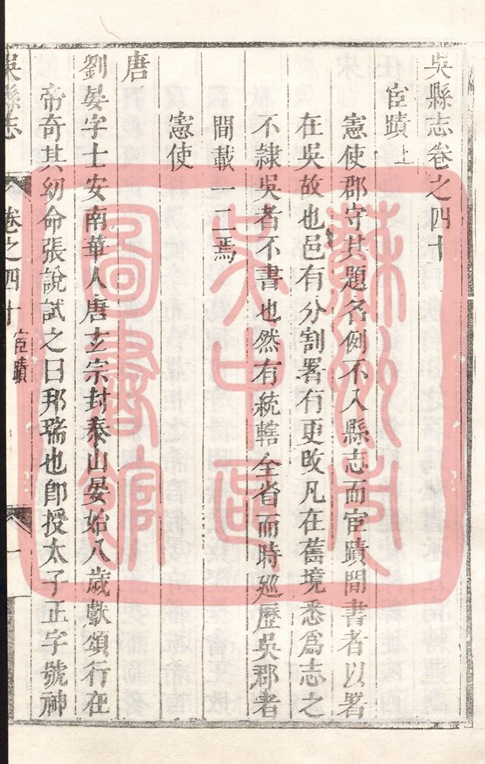 吳縣志卷之四十
宦蹟上
憲使郡守其題名例不入縣志而宦蹟間書者以署
在吳故也邑有分割署有更改凡在舊境悉爲志之
不隷吳者不書也然有統轄全省而時廵歷吳郡者
間載一二焉
憲使
唐
劉晏字士安南華人唐玄宗封泰山晏始八歲獻頌行在
帝奇其幼命張說試之曰邦瑞也卽授太子正字號神
吳縣志
卷之四十
宦蹟
一
蘇州市
吳中區
圖書館